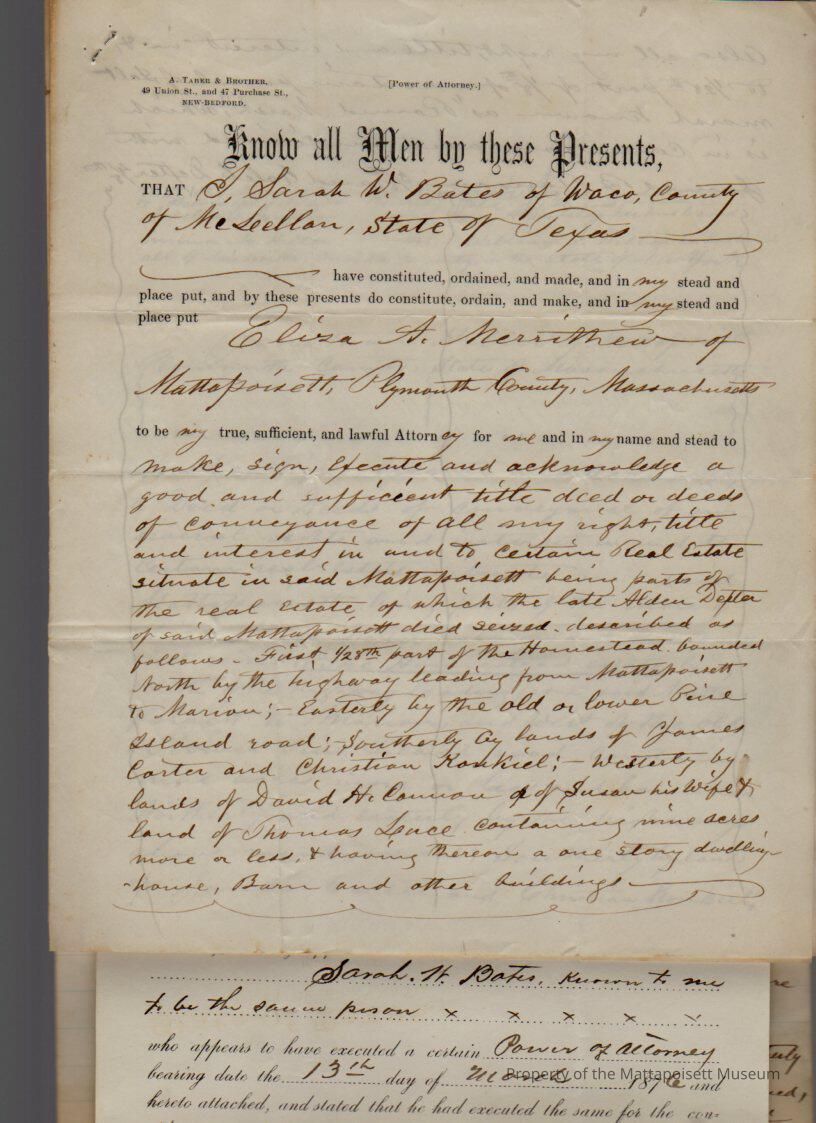 A. TABER & BROTHER,
49 Union St., and 47 Purchase St.,
NEW-BEDFORD.
[Power of Attorney.]
Know all Men by these Presents,
THAT I, Sarah W. Bates of Waco, County
of McLellan, State of Texas
have constituted, ordained, and made, and in my stead and
place put, and by these presents do constitute, ordain, and make, and in my stead and
place put Eliza A. Merrithew of
Mattapoisett, Plymouth County, Massachusetts
to be my true, sufficient, and lawful Attorney for me and in my name and stead to
make, sign, execute and acknowledge a
good and sufficient title deed or deeds
of conveyance of all my right, title
and interest in and to certain Real Estate
situate in said Mattapoisett being parts of
the real estate of which the late Alden Dexter
of said Mattapoisett died seized. described as
follows - First 1/28th part of the Homestead. bounded
North by the highway leading from Mattapoisett
to Marion; - Easterly by the old or lower Pine
Island road; - Southerly by lands of James
Carter and Christian Kunkiel; - Westerly by
lands of David H. Cannon & of Susan his wife &
land of Thomas Luce containing nine acres
more or less, & having thereon a one story dwelling
-house, Barn and other buildings
Sarah. W. Bates, known to me
to be the same person x x x x x
who appears to have executed a certain Power of Attorney
bearing date the 13th day of March 1876 and
hereto attached, and stated that he had executed the same for the con-
Property of the Mattapoisett Museum